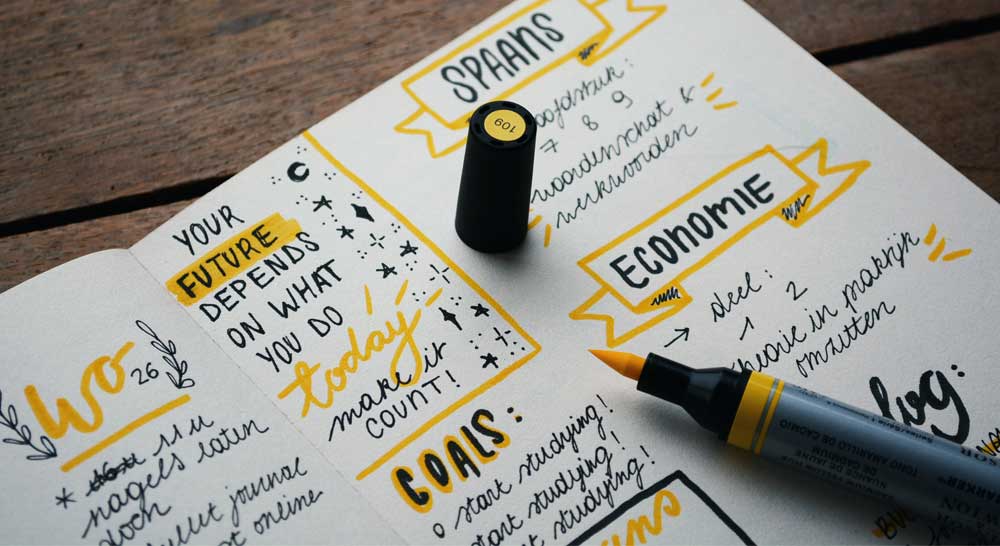 Wo
26
* 11u
nagels laten
doen
bullet journal
online
YOUR
FUTURE
DEPENDS
ON WHAT
YOU DO
today
make it
COUNT!
GOALS:
o start studying!
start studying!
start studying!
SPAANS
hoofdstuk:
7 8 9
woordenschat &
werkwoorden
ECONOMIE
→ deel:
1 2
theorie in praktijk
omzetten
log:
109
TONO AMARILLO DE CADMIO